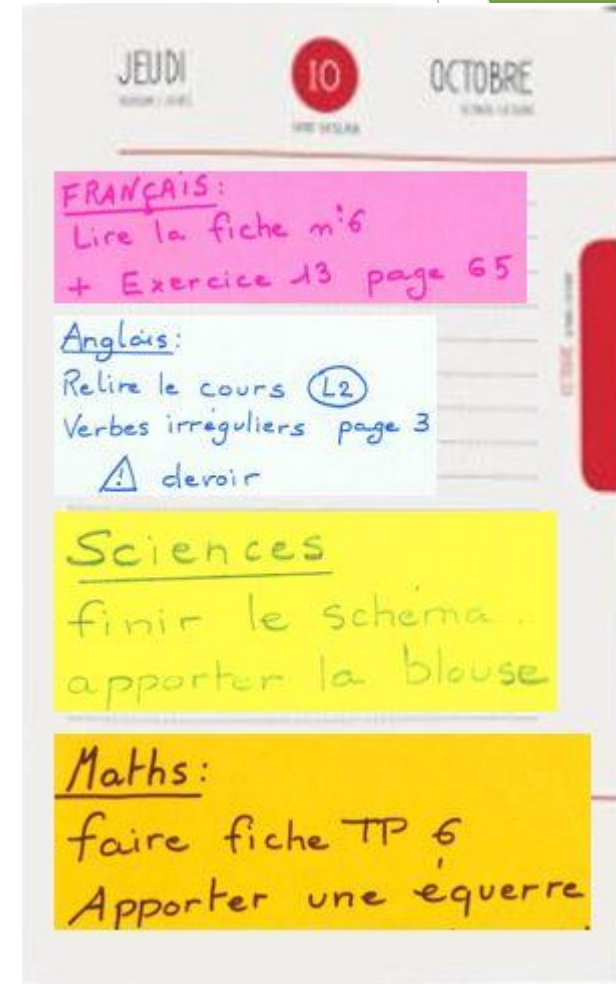 JEUDI
10
OCTOBRE
FRANÇAIS:
Lire la fiche n°6
+ Exercice 13 page 65
Anglais:
Relire le cours L2
Verbes irréguliers page 3
⚠ devoir
Sciences
finir le schéma.
apporter la blouse
Maths:
faire fiche TP 6
Apporter une équerre
OCTOBRE